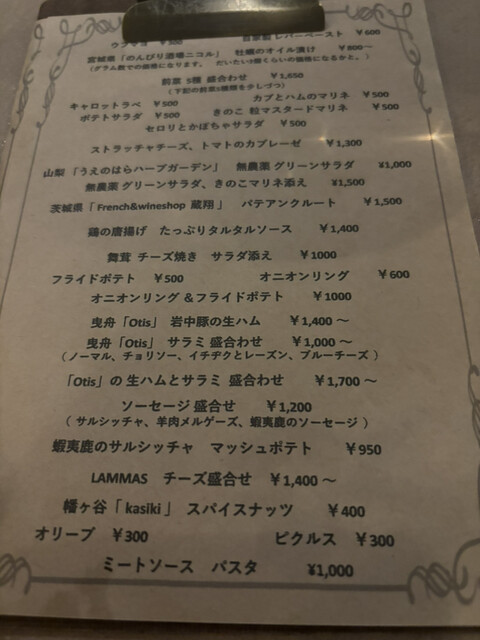 ウフマヨ ¥300 自家製 レバーペースト ¥600
宮城県「のんびり酒場ニコル」 牡蠣のオイル漬け ¥800～
(グラム数での価格になります。 だいたい5個くらいの価格になるかと。)
前菜 5種 盛合わせ ¥1,650
(下記の前菜5種類を少しづつ)
キャロットラペ ¥500 カブとハムのマリネ ¥500
ポテトサラダ ¥500 きのこ 粒マスタードマリネ ¥500
セロリとかぼちゃサラダ ¥500
ストラッチャチーズ、トマトのカプレーゼ ¥1,300
山梨「うえのはらハーブガーデン」 無農薬 グリーンサラダ ¥1,000
無農薬 グリーンサラダ、きのこマリネ添え ¥1,500
茨城県「French&wineshop 蔵翔」 パテアンクルート ¥1,500
鶏の唐揚げ たっぷりタルタルソース ¥1,400
舞茸 チーズ焼き サラダ添え ¥1000
フライドポテト ¥500 オニオンリング ¥600
オニオンリング &フライドポテト ¥1000
曳舟「Otis」 岩中豚の生ハム ¥1,400～
曳舟「Otis」 サラミ 盛合わせ ¥1,000～
(ノーマル、チョリソー、イチヂクとレーズン、ブルーチーズ )
「Otis」の 生ハムとサラミ 盛合わせ ¥1,700～
ソーセージ 盛合せ ¥1,200
( サルシッチャ、羊肉メルゲーズ、蝦夷鹿のソーセージ )
蝦夷鹿のサルシッチャ マッシュポテト ¥950
LAMMAS チーズ盛合せ ¥1,400～
幡ヶ谷「kasiki」 スパイスナッツ ¥400
オリーブ ¥300 ピクルス ¥300
ミートソース パスタ ¥1,000